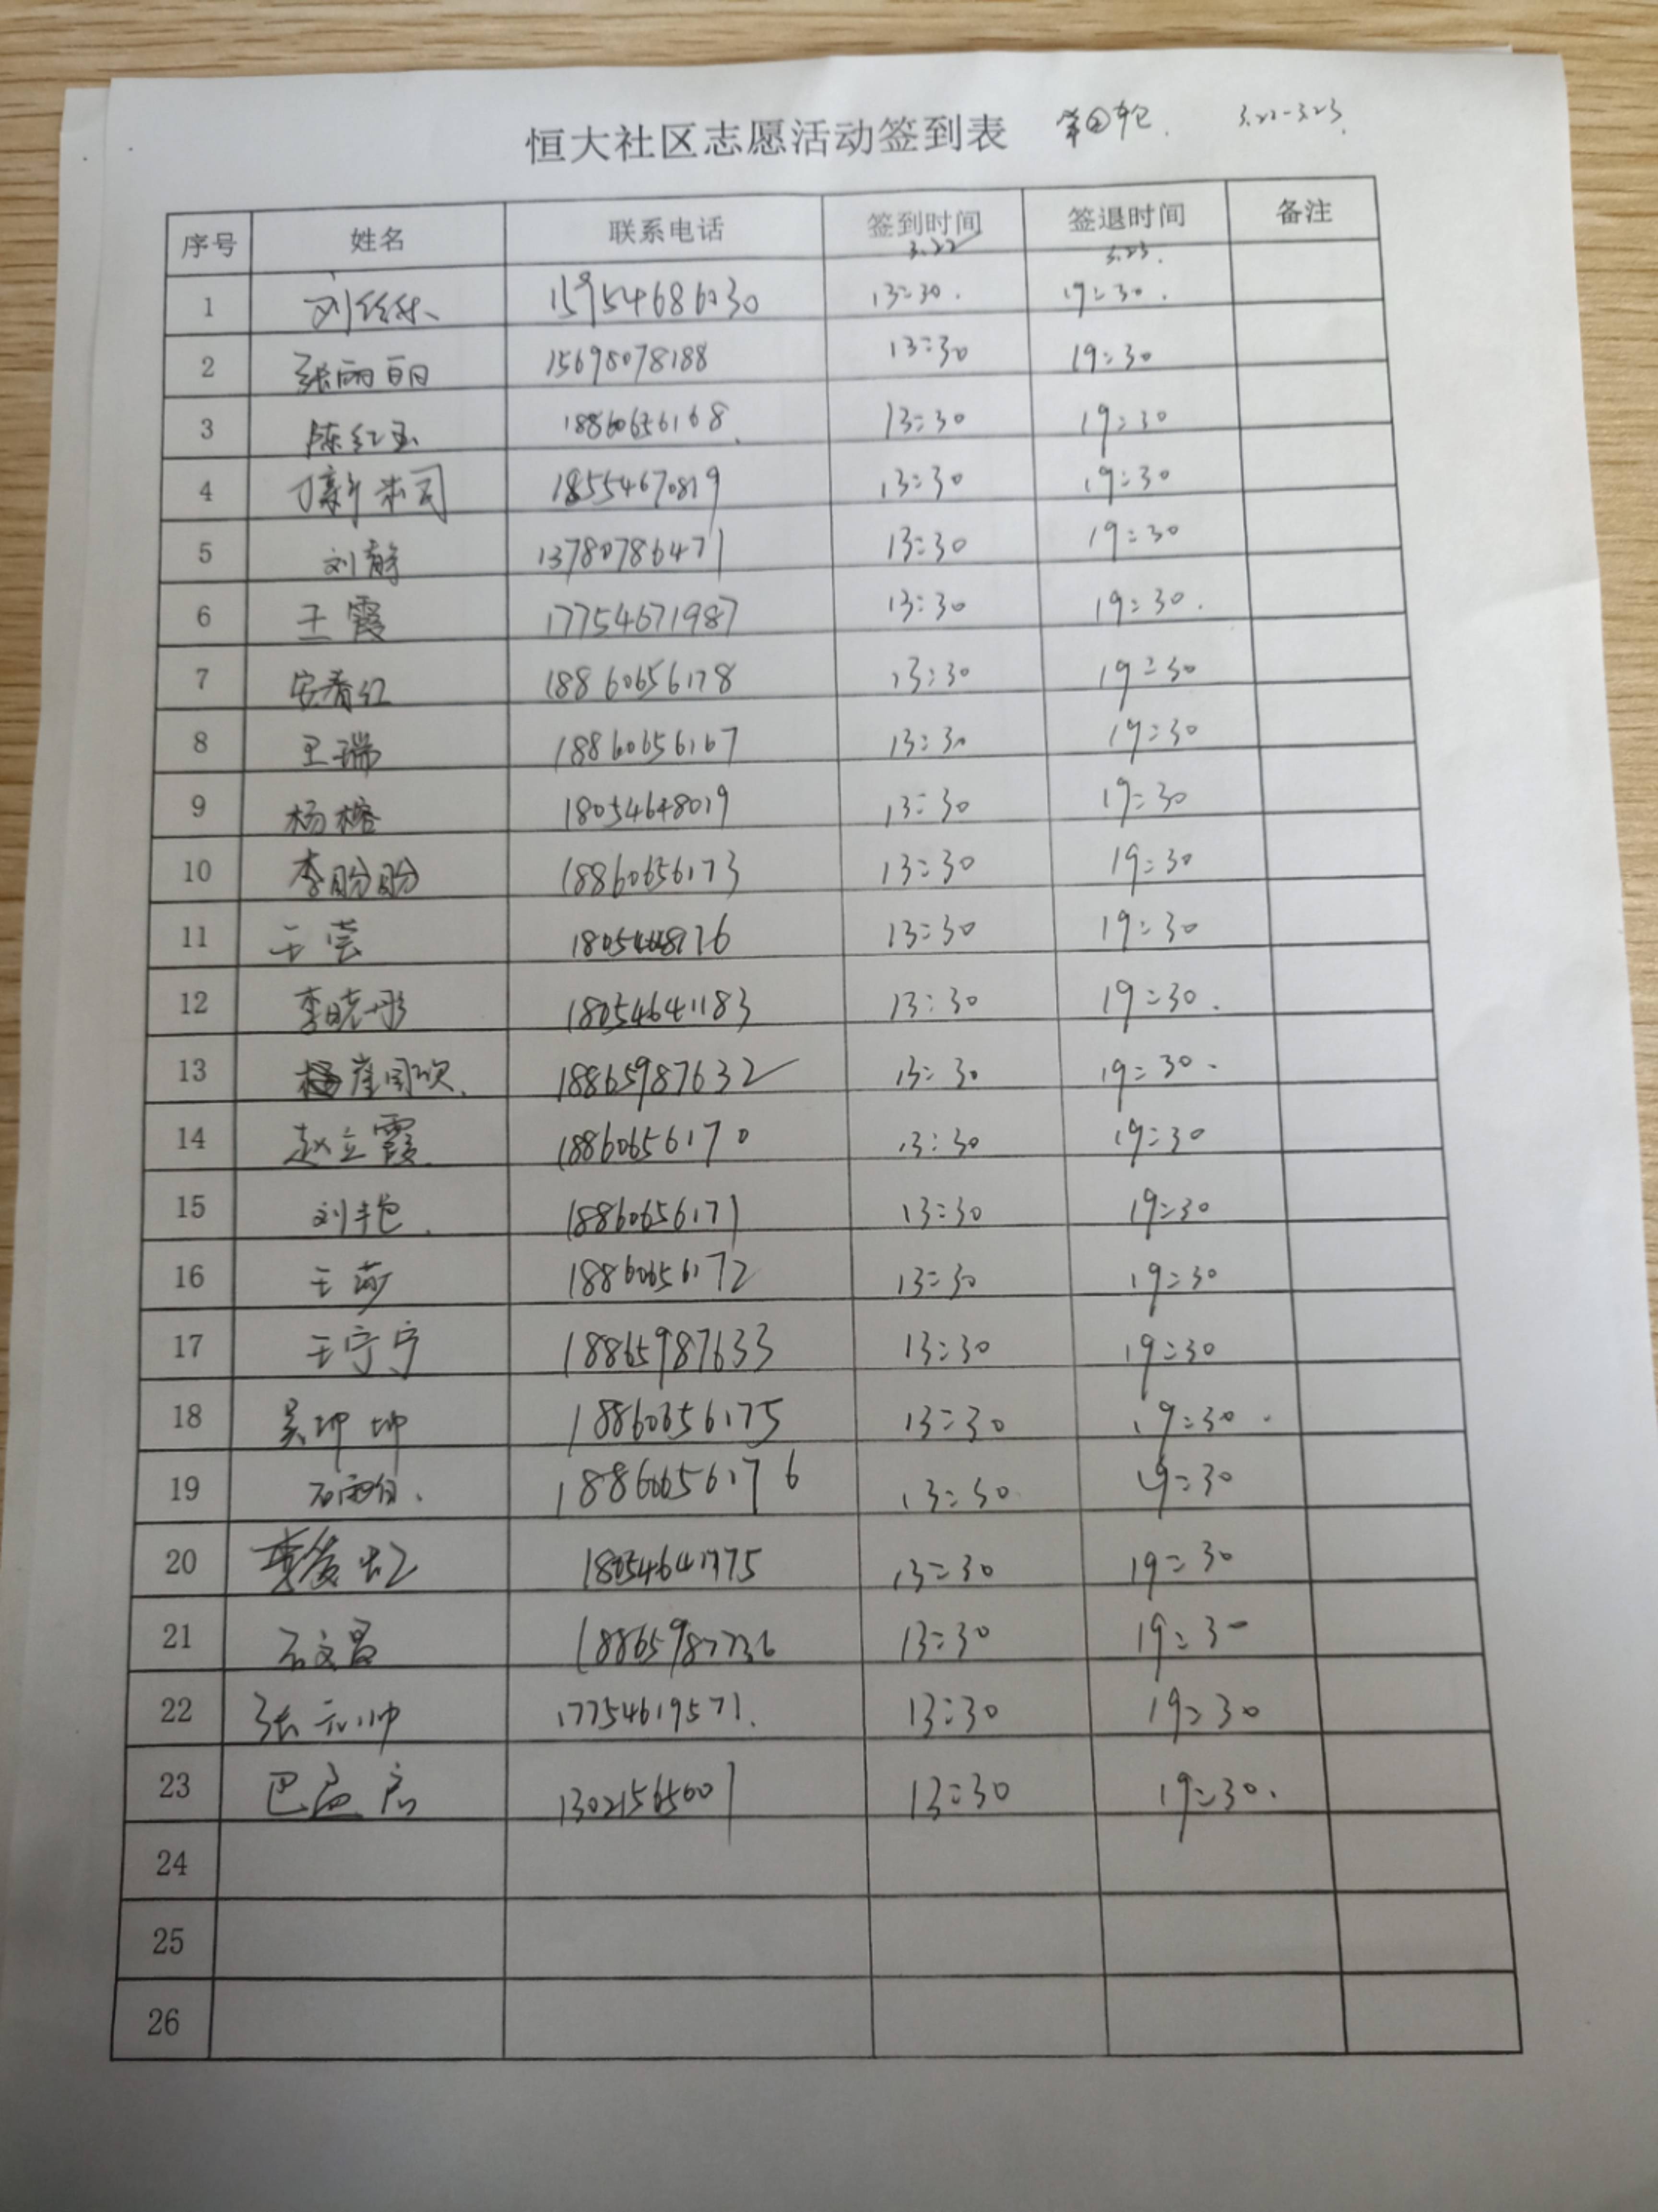 恒大社区志愿活动签到表 第四轮 3.22-3.23
序号 姓名 联系电话 签到时间 签退时间 备注
3.22 3.23
1 15954686030 13:30 19:30
2 张丽丽 15698078188 13:30 19:30
3 陈红玉 18860656168 13:30 19:30
4 18554670819 13:30 19:30
5 刘静 13780786471 13:30 19:30
6 王霞 17754671987 13:30 19:30
7 安春红 18860656178 13:30 19:30
8 王瑞 18860656167 13:30 19:30
9 杨榕 18054648019 13:30 19:30
10 李盼盼 18860656173 13:30 19:30
11 13:30 19:30
12 李晓彤 18054641183 13:30 19:30
13 18865987632 13:30 19:30
14 赵立霞 18860656170 13:30 19:30
15 刘艳 18860656171 13:30 19:30
16 王莎 18860656172 13:30 19:30
17 王宁宁 18865987633 13:30 19:30
18 吴坤坤 18860656175 13:30 19:30
19 18860656176 13:30 19:30
20 18054641775 13:30 19:30
21 石文昌 18865987736 13:30 19:30
22 张元帅 17754619571 13:30 19:30
23 巴孟启 13021565001 13:30 19:30
24
25
26